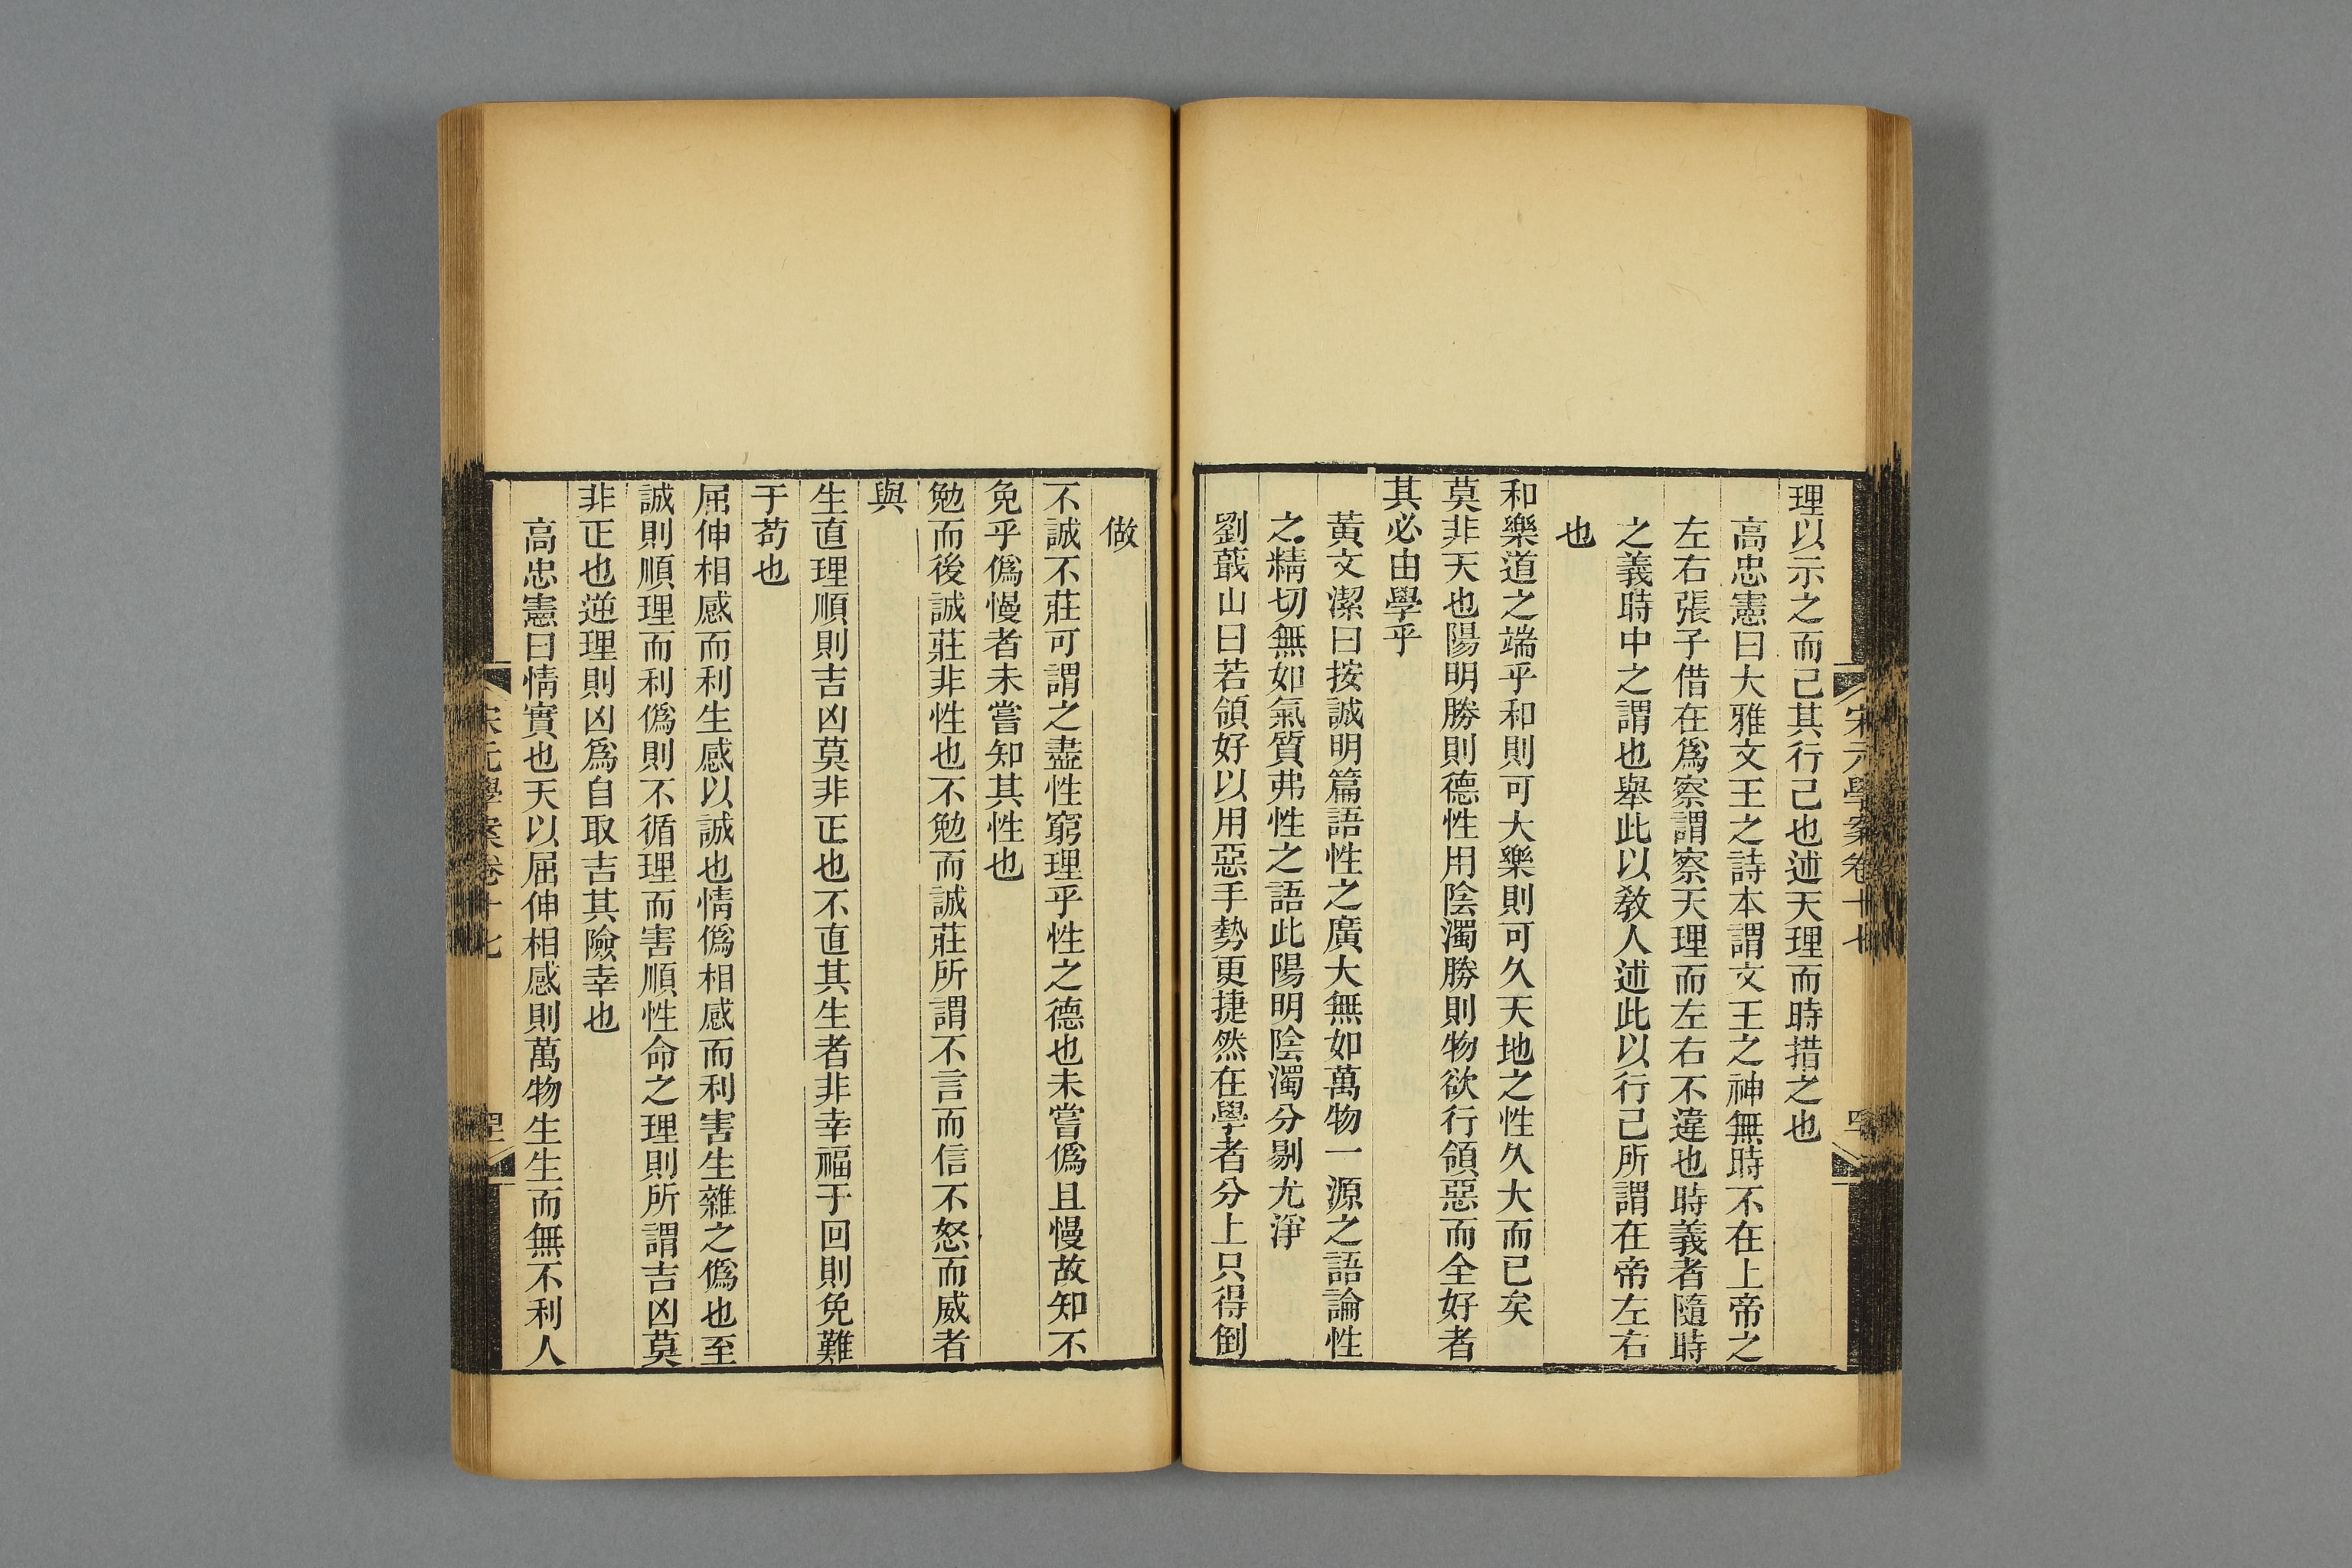 理以示之而己其行己也述天理而時措之也
高忠憲曰大雅文王之詩本謂文王之神無時不在上帝之
左右張子借在爲察謂察天理而左右不違也時義者隨時
之義時中之謂也舉此以教人述此以行己所謂在帝左右
也
和樂道之端乎和則可大樂則可久天地之性久大而已矣
莫非天也陽明勝則德性用陰濁勝則物欲行領惡而全好者
其必由學乎
黃文潔曰按誠明篇語性之廣大無如萬物一源之語論性
之精切無如氣質弗性之語此陽明陰濁分剔尤淨
劉蕺山曰若領好以用惡手勢更捷然在學者分上只得倒
做
不誠不莊可謂之盡性窮理乎性之德也未嘗僞且慢故知不
免乎僞慢者未嘗知其性也
勉而後誠莊非性也不勉而誠莊所謂不言而信不怒而威者
與
生直理順則吉凶莫非正也不直其生者非幸福于回則免難
于苟也
屈伸相感而利生感以誠也情僞相感而利害生雜之僞也至
誠則順理而利僞則不循理而害順性命之理則所謂吉凶莫
非正也逆理則凶爲自取吉其險幸也
高忠憲曰情實也天以屈伸相感則萬物生生而無不利人
宋元學案卷十七